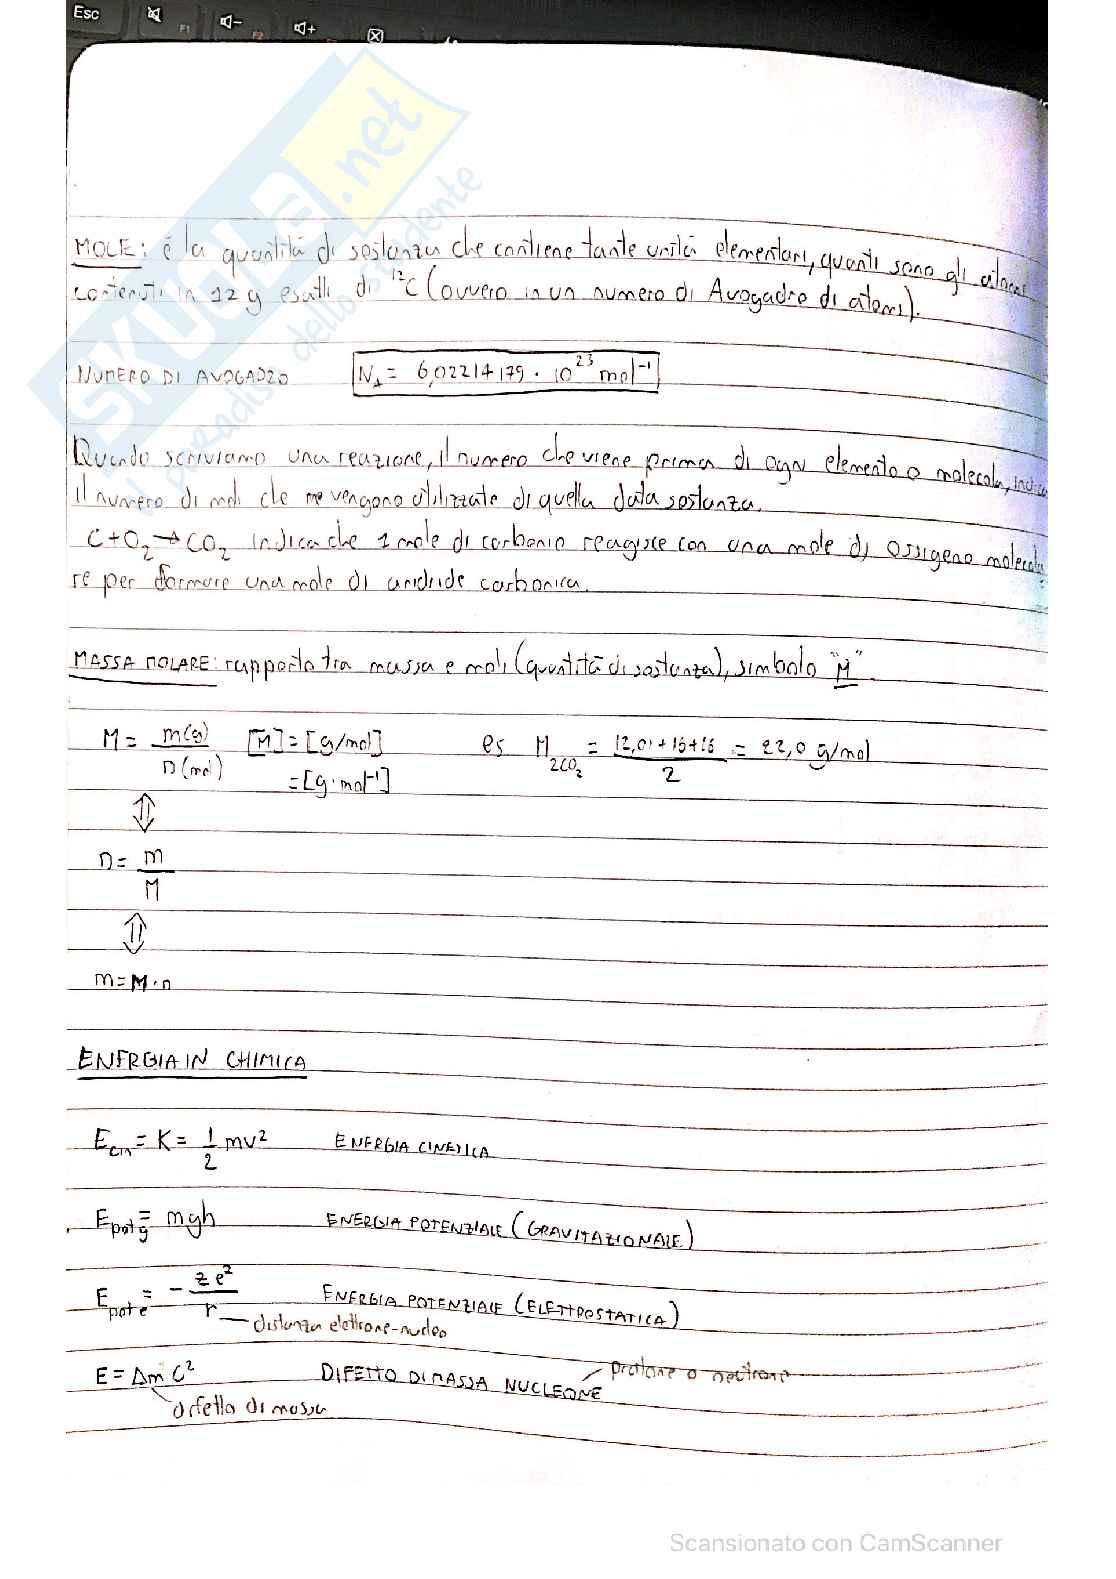 Esc
F1
F2
SKUOLA.net
il paradiso dello studente
MOLE: è la quantità di sostanza che contiene tante unità elementari, quanti sono gli atomi
contenuti in 12 g esatti di ¹²C (ovvero in un numero di Avogadro di atomi).
NUMERO DI AVOGADRO N_A = 6,02214179 · 10²³ mol⁻¹
Quando scriviamo una reazione, il numero che viene prima di ogni elemento o molecola, indica
il numero di moli che ne vengono utilizzate di quella data sostanza.
C+O₂→CO₂ indica che 1 mole di carbonio reagisce con una mole di ossigeno molecola
re per formare una mole di anidride carbonica.
MASSA MOLARE: rapporto tra massa e moli (quantità di sostanza), simbolo "M".
M = m(g)/n(mol) [M] = [g/mol] es M₂CO₂ = 12,01+16+16/2 = 22,0 g/mol
= [g·mol⁻¹]
⇕
n = m/M
⇕
m = M·n
ENERGIA IN CHIMICA
E cin = K = 1/2 mv² ENERGIA CINETICA
E pot g = mgh ENERGIA POTENZIALE (GRAVITAZIONALE)
E pot e = - ze²/r ENERGIA POTENZIALE (ELETTROSTATICA)
distanza elettrone-nucleo
E = Δm C² DIFETTO DI MASSA NUCLEONE protone o neutrone
difetto di massa
Scansionato con CamScanner